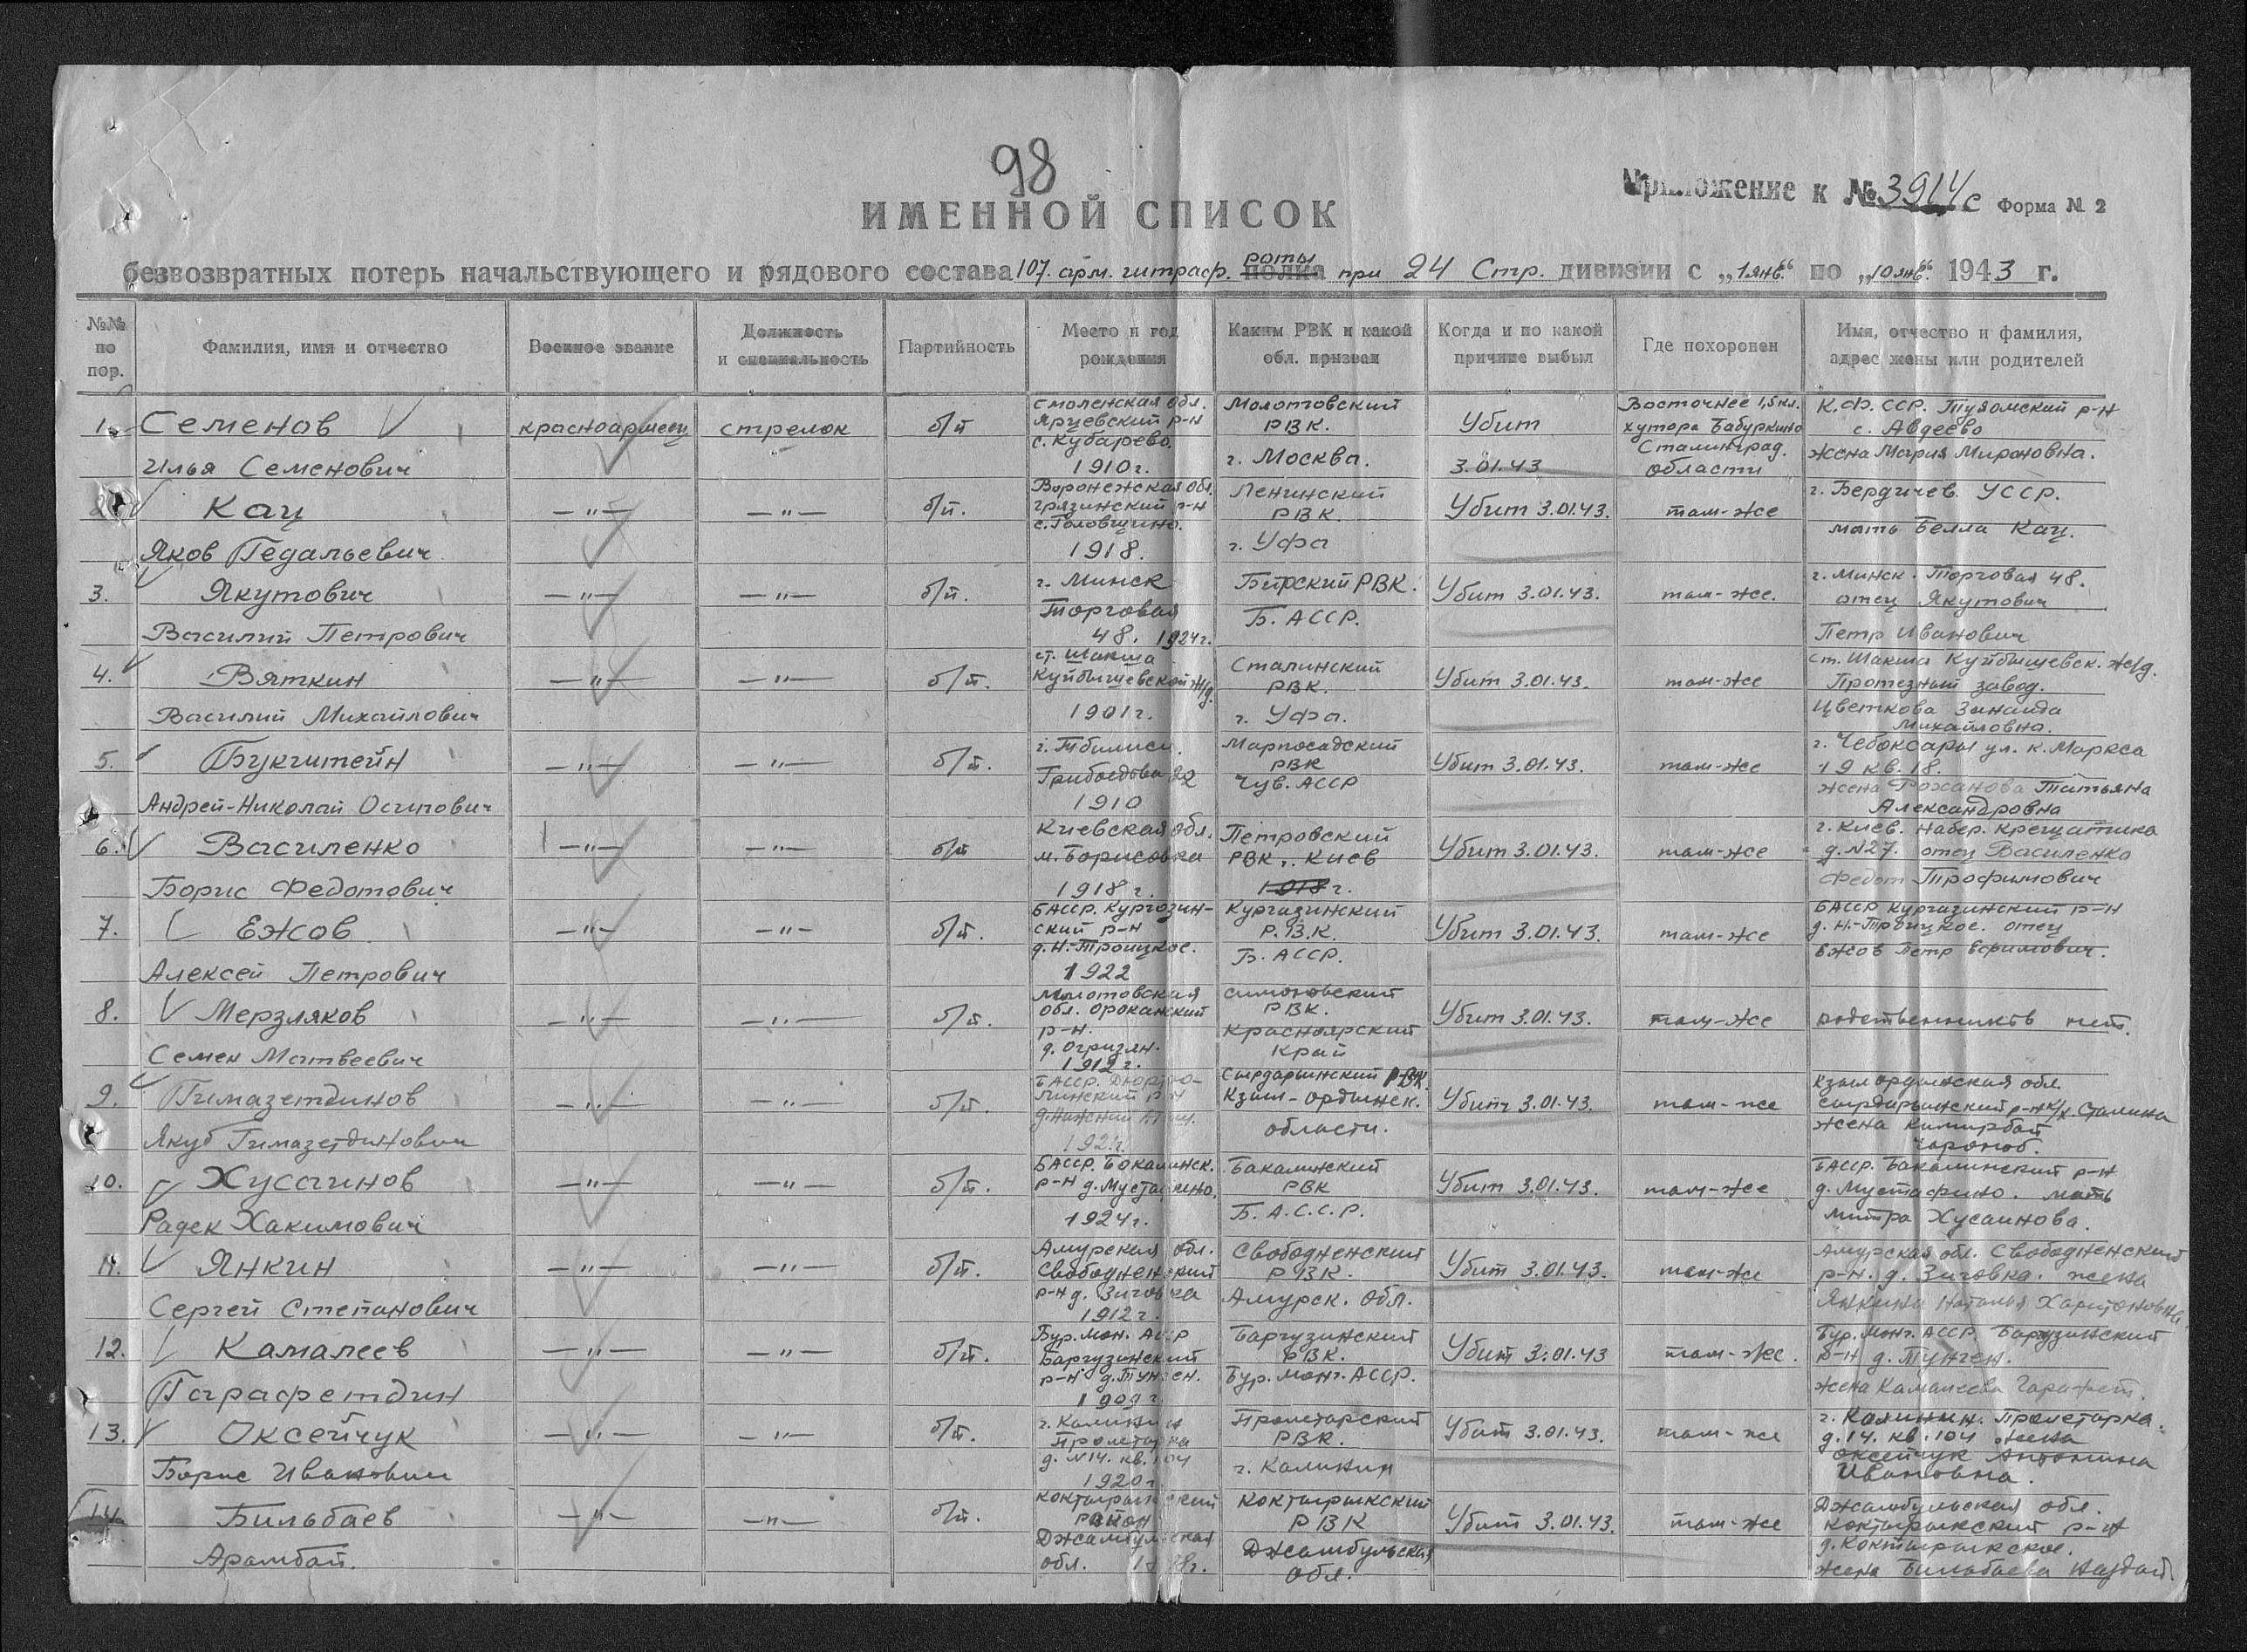 98
Приложение к № 3914с Форма № 2
ИМЕННОЙ СПИСОК
безвозвратных потерь начальствующего и рядового состава 107. арм. штраф. роты полка при 24 Стр. дивизии с „1 янв." по „10 янв." 1943 г.
№№ по пор.
Фамилия, имя и отчество
Военное звание
Должность и специальность
Партийность
Место и год рождения
Каким РВК и какой обл. призван
Когда и по какой причине выбыл
Где похоронен
Имя, отчество и фамилия, адрес жены или родителей
1. Семенов
Илья Семенович
красноармеец
стрелок
б/п
Смоленская обл.
Ярцевский р-н
с. Кубарево.
1910 г.
Молотовский
РВК.
г. Москва.
Убит
3.01.43
Восточнее 1,5 кл.
хутора Бабуркино
Сталинград.
области
К.Ф.ССР. р-н
с. Авдеево
жена Мария Мироновна.
2. Кац
Яков Гедальевич
—"—
—"—
б/п.
Воронежская обл.
Грязинский р-н
с. Головщино.
1918.
Ленинский
РВК.
г. Уфа
Убит 3.01.43.
там-же
г. Бердичев УССР.
мать Белла Кац.
3. Якутович
Василий Петрович
—"—
—"—
б/п.
г. Минск
Торговая
48. 1924 г.
Бирский РВК.
Б. АССР.
Убит 3.01.43.
там-же.
г. Минск. Торговая 48.
отец Якутович
Петр Иванович
4. Вяткин
Василий Михайлович
—"—
—"—
б/п.
ст. Шакша
Куйбышевской ж/д.
1901 г.
Сталинский
РВК.
г. Уфа.
Убит 3.01.43.
там-же
ст. Шакша Куйбышевск. ж/д.
Протезный завод.
Цветкова Зинаида
Михайловна.
5. Букштейн
Андрей-Николай Осипович
—"—
—"—
б/п.
г. Тбилиси.
Грибоедова 22
1910
Марпосадский
РВК
Чув. АССР
Убит 3.01.43.
там-же
г. Чебоксары ул. К. Маркса
19 кв. 18.
жена Рожанова Татьяна
Александровна
6. Василенко
Борис Федотович
—"—
—"—
б/п
Киевская обл.
м. Борисовка
1918 г.
Петровский
РВК г. Киев
1918 г.
Убит 3.01.43.
там-же
г. Киев. Набер. Крещатика
д. N27. отец Василенко
Федот Трофимович
7. Ежов
Алексей Петрович
—"—
—"—
б/п.
БАССР. Кургазин-
ский р-н
д. Н.-Троицкое.
1922
Кургазинский
Р.В.К.
Б. АССР.
Убит 3.01.43.
там-же
БАССР Кургазинский р-н
д. Н.-Троицкое. отец
Ежов Петр Ефимович.
8. Мерзляков
Семен Матвеевич
—"—
—"—
б/п.
Молотовская
обл.
р-н.
1912 г.
РВК.
Красноярский
край
Убит 3.01.43.
там-же
родственников нет.
9. Гимазетдинов
Якуб Гимазетдинович
—"—
—"—
б/п.
БАССР.
Сырдарьинский РВК.
Кзыл-ординск.
области.
Убит 3.01.43.
там-же
Кзылординская обл.
Сырдарьинский р-н к/х. Сталина
жена
10. Хусаинов
Радек Хакимович
—"—
—"—
б/п.
БАССР. Бакалинск.
р-н д. Мустафино.
1924 г.
Бакалинский
РВК
Б. А.С.С.Р.
Убит 3.01.43.
там-же
БАССР. Бакалинский р-н
д. Мустафино. мать
Хусаинова.
11. Янкин
Сергей Степанович
—"—
—"—
б/п.
Амурская обл.
Свободненский
р-н д. Зиговка
1912 г.
Свободненский
РВК.
Амурск. обл.
Убит 3.01.43.
там-же
Амурская обл. Свободненский
р-н. д. Зиговка. жена
Янкина Наталья Харитоновна.
12. Камалеев
Гарафетдин
—"—
—"—
б/п.
Бур. Мон. АССР
Баргузинский
р-н д. Тунген.
1909 г.
Баргузинский
РВК.
Бур. Монг. АССР.
Убит 3.01.43
там-же.
Бур. Монг. АССР. Баргузинский
р-н д. Тунген.
жена Камалеева
13. Оксейчук
Борис Иванович
—"—
—"—
б/п.
г. Калинин
Пролетарка
д. N14. кв. 104
1920 г.
Пролетарский
РВК.
г. Калинин
Убит 3.01.43.
там-же
г. Калинин. Пролетарка.
д. 14. кв. 104 жена
Оксейчук Антонина
Ивановна.
14. Бильбаев
Арамбай.
—"—
—"—
б/п.
Коктырыкский
район
Джамбульская
обл.
Коктырыкский
РВК
Джамбульская
обл.
Убит 3.01.43.
там-же
Джамбульская обл.
Коктырыкский р-н
д. Коктырыкское.
жена Бильбаева